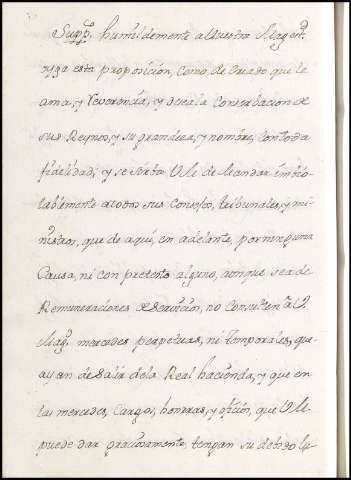 Suppco. humildemente a Vuestra Magestd.
oyga esta proposición, como de Criado que le
ama, y reverencia, y desea la conserbacion de
sus Reynos, y su grandeza, y nombre, con toda
fidelidad, y se sirba V. M. de Mandar imbio-
lablemente a todos sus consejos, tribunales, y mi-
nistros, que de aqui, en adelante, por ninguna
Causa, ni con pretexto alguno, aunque sea de
Remuneraciones de Servicios, no consulten a V.
Magd. mercedes perpetuas, ni temporales, que
ayan de Salir de la Real hacienda, y que en
las mercedes, Cargos, honrras, y oficios, que V. M.
puede dar graciosamente, tengan su debido lu-